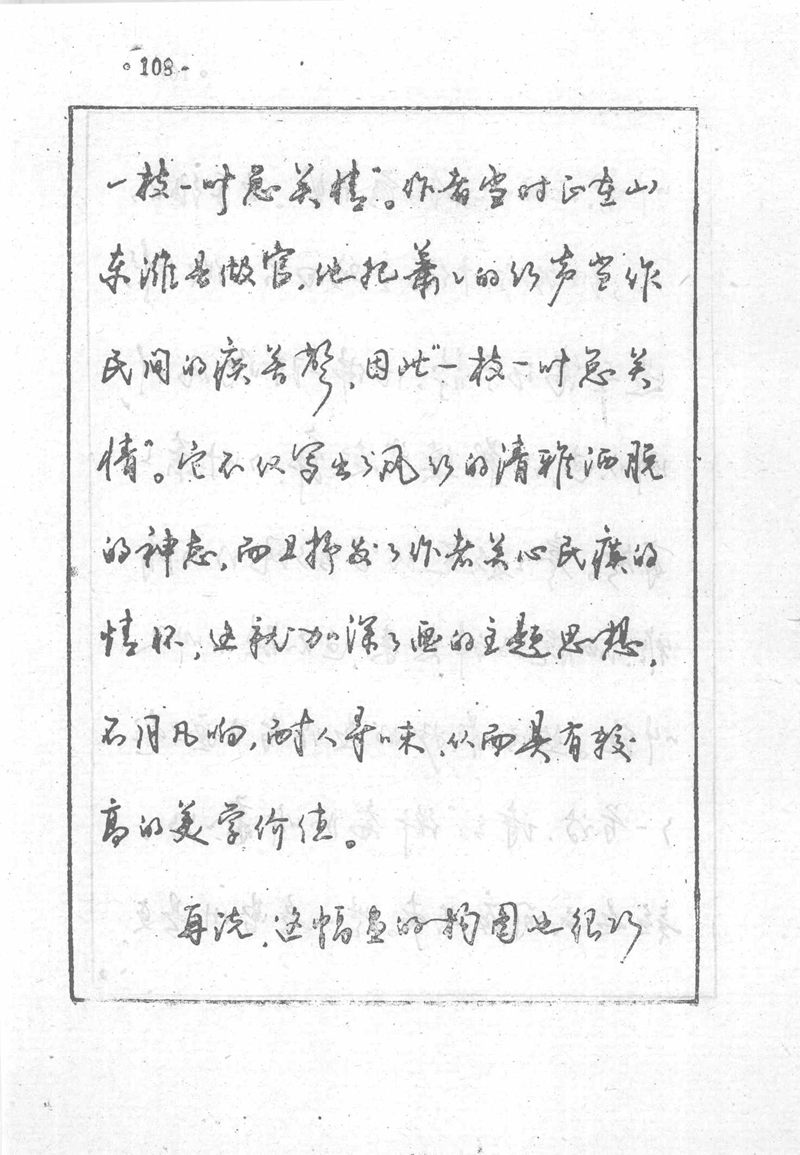 ·108·
一枝一叶总关情”。作者当时正在山
东潍县做官,他把萧萧的竹声当作
民间的疾苦声,因此“一枝一叶总关
情”。它不仅写出了风竹的清雅洒脱
的神态,而且抒发了作者关心民瘼的
情怀,这就加深了画的主题思想,
不同凡响,耐人寻味,从而具有较
高的美学价值。
再说,这幅画的构图也很巧